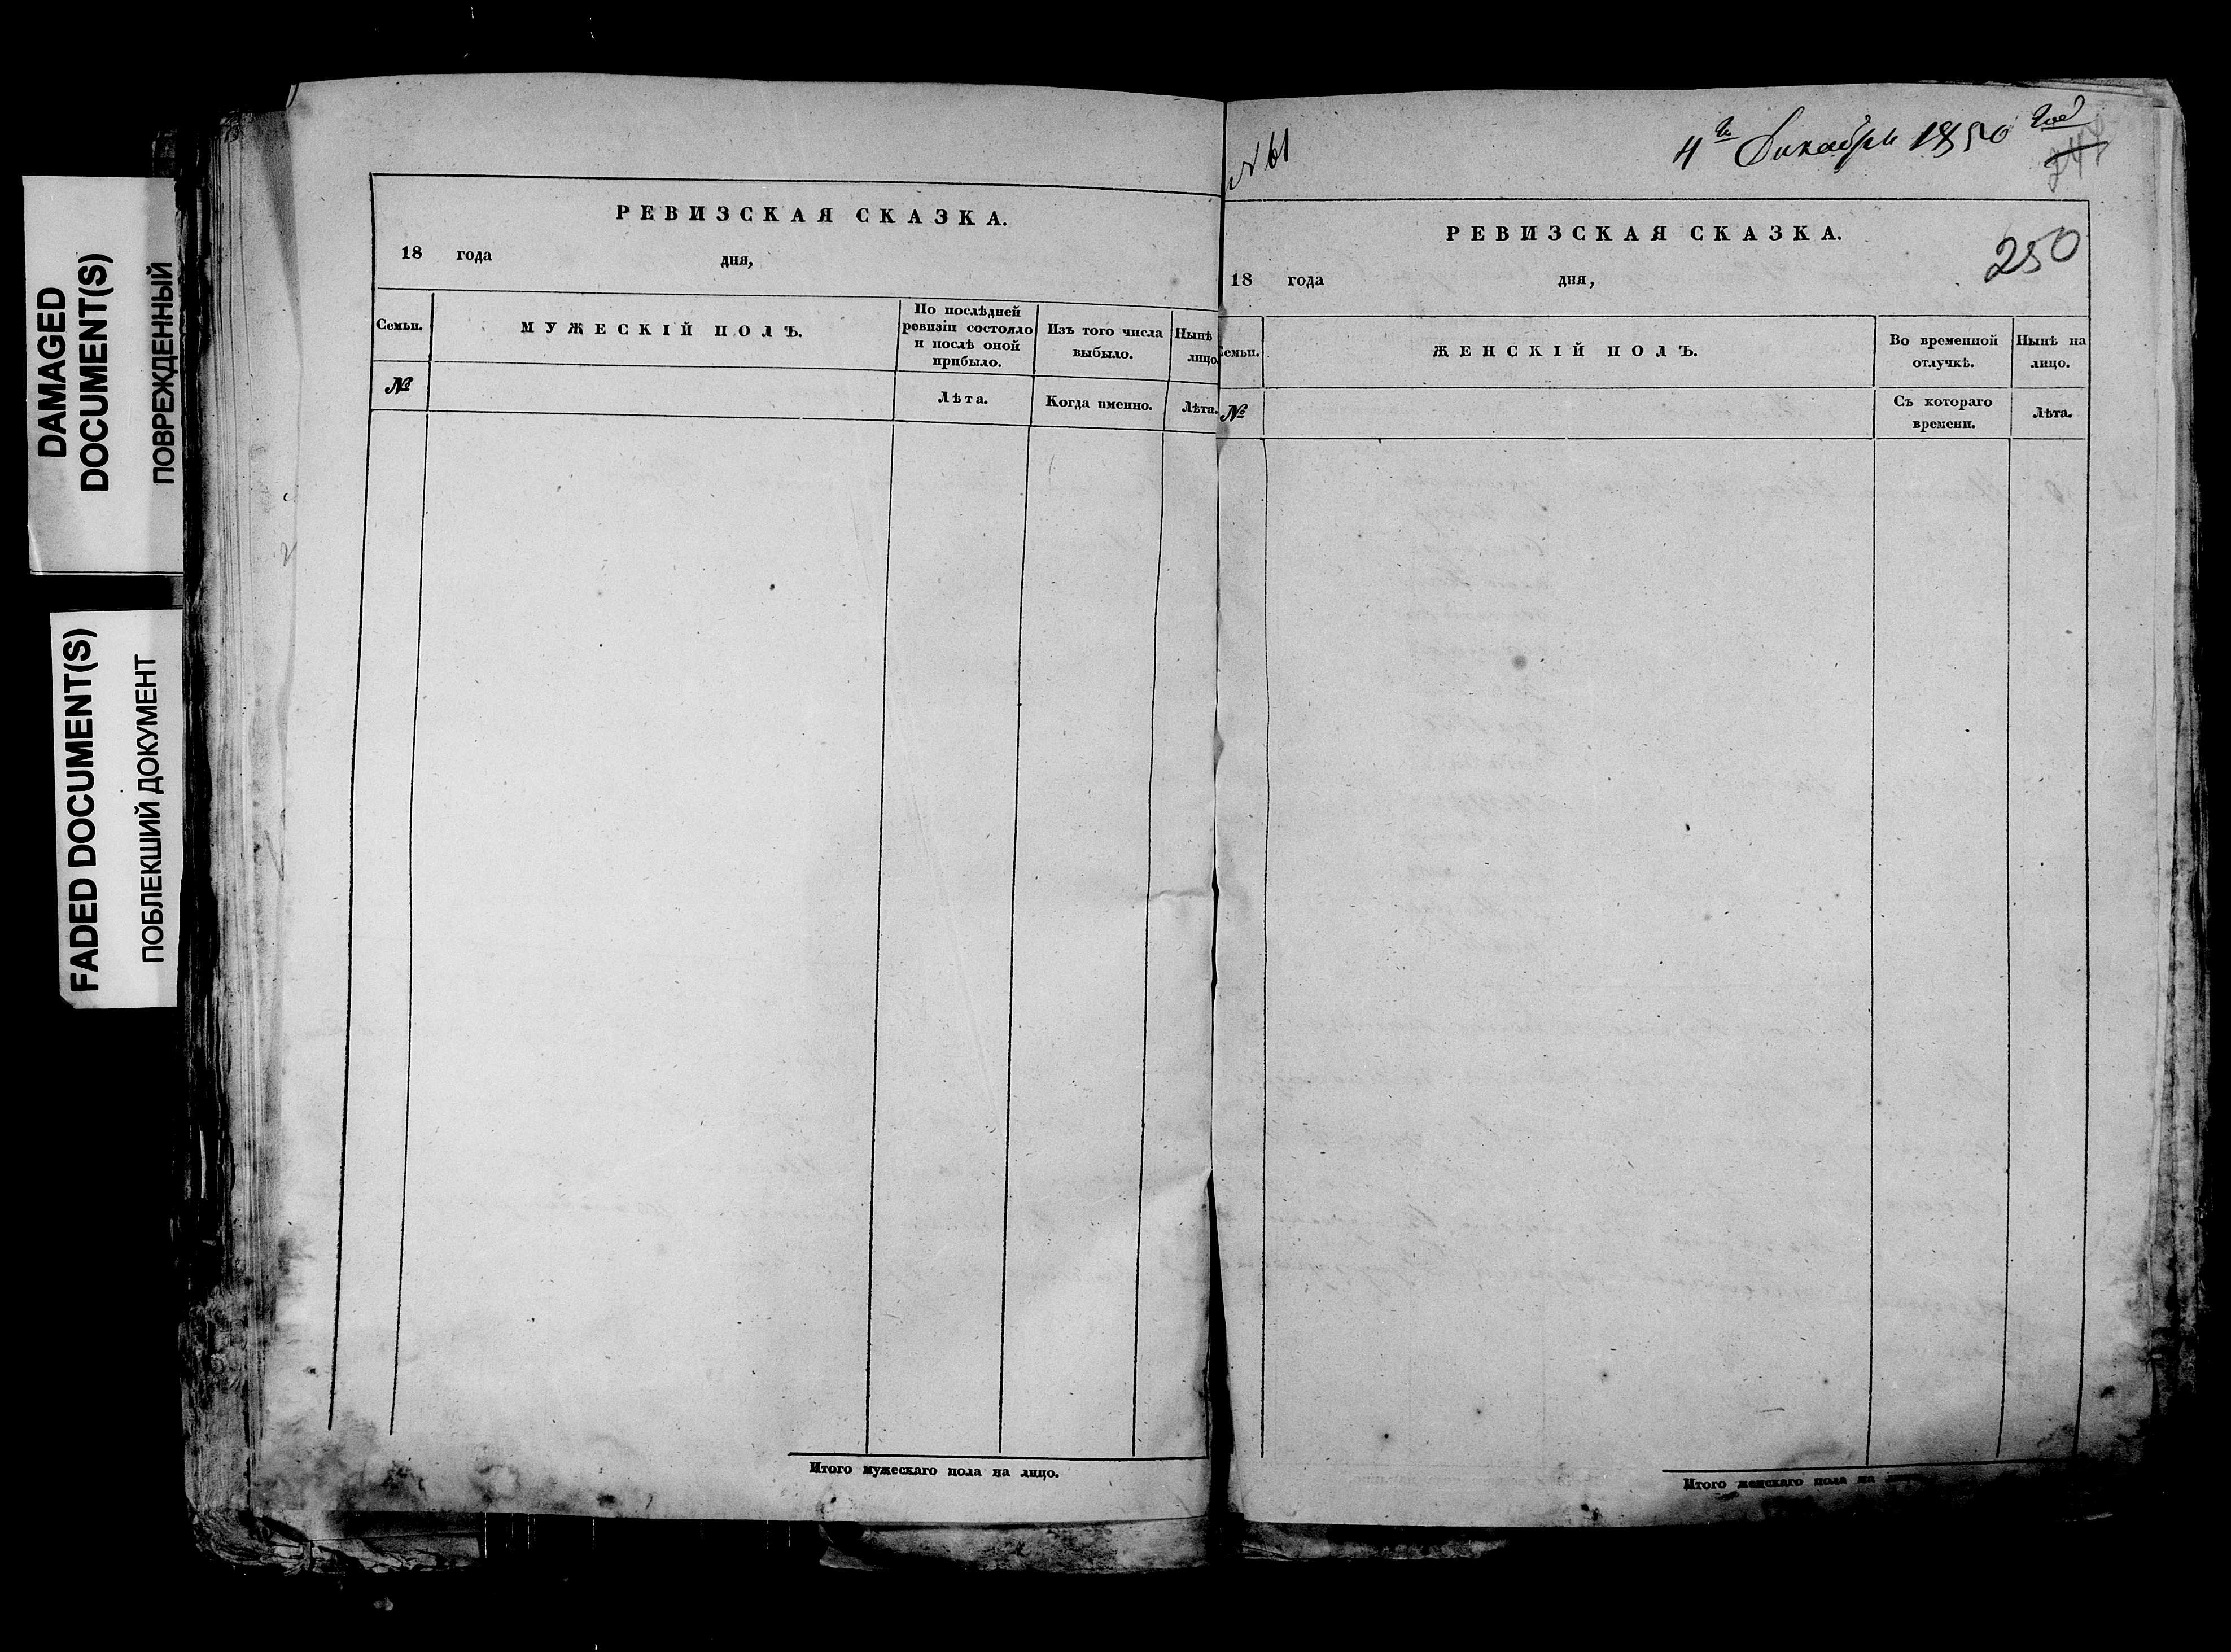 DAMAGED
DOCUMENT(S)
ПОВРЕЖДЕННЫЙ
FADED DOCUMENT(S)
ПОБЛЕКШИЙ ДОКУМЕНТ
РЕВИЗСКАЯ СКАЗКА.
18 года дня,
Семьи.
МУЖЕСКІЙ ПОЛЪ.
По послѣдней
ревизіи состояло
и послѣ оной
прибыло.
Изъ того числа
выбыло.
Нынѣ
лицо
№
Лѣта.
Когда именно.
Лѣта.
Итого мужескаго пола на лицо.
N 61
4 Декабря 1850 год
250
РЕВИЗСКАЯ СКАЗКА.
18 года дня,
Семьи.
ЖЕНСКІЙ ПОЛЪ.
Во временной
отлучкѣ.
Нынѣ на
лицо.
№
Съ котораго
времени.
Лѣта.
Итого женскаго пола на